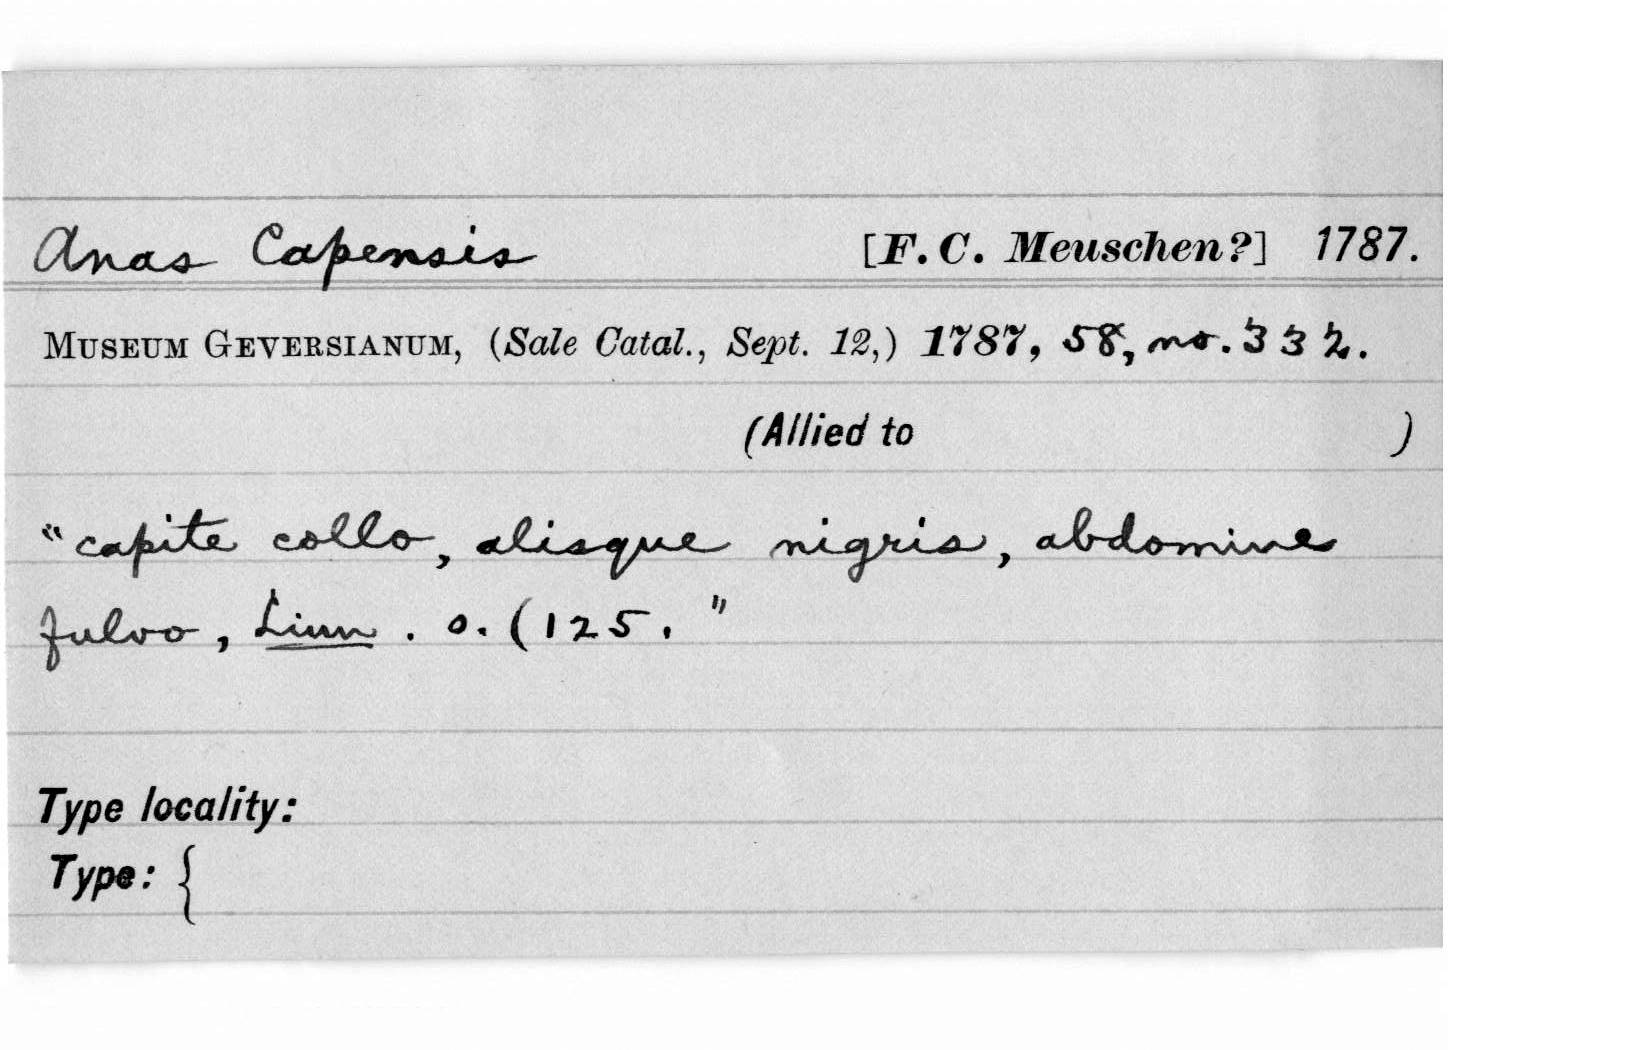 Anas Capensis [F. C. Meuschen?] 1787.
MUSEUM GEVERSIANUM, (Sale Catal., Sept. 12,) 1787, 58, no. 332.
(Allied to )
"capite collo, alisque nigris, abdomine
fulvo, Linn. o. (125."
Type locality:
Type: {